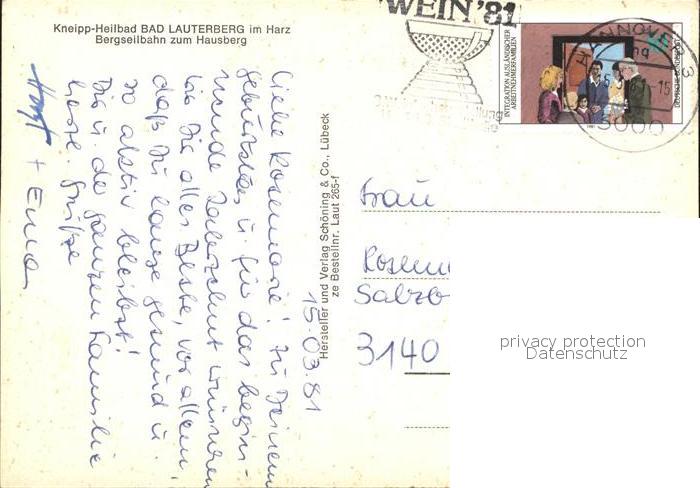 Kneipp-Heilbad BAD LAUTERBERG im Harz
Bergseilbahn zum Hausberg
WEIN '81
INTEGRATION AUSLÄNDISCHER
ARBEITNEHMERFAMILIEN
DEUTSCHE BUNDESPOST
HANNOVER
3000
15.03.81
Liebe Rosemarie! Zu Deinem
Geburtstag u. für das begin-
nende Jahrzehnt wünschen
wir Dir alles Beste, vor allem,
daß Du lange gesund u.
so aktiv bleibst!
Dir u. der ganzen Familie
herzl. Grüße
Horst + Erna
Hersteller und Verlag Schöning & Co., Lübeck
ze Bestellnr. Laut 265-f
Frau
Rosem
Salzb
3140
privacy protection
Datenschutz